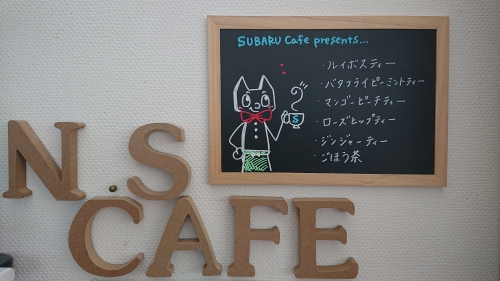 SUBARU Cafe presents...
・ルイボスティー
・バタフライピーミントティー
・マンゴーピーチティー
・ローズヒップティー
・ジンジャーティー
・ごぼう茶
S
N.S
CAFE